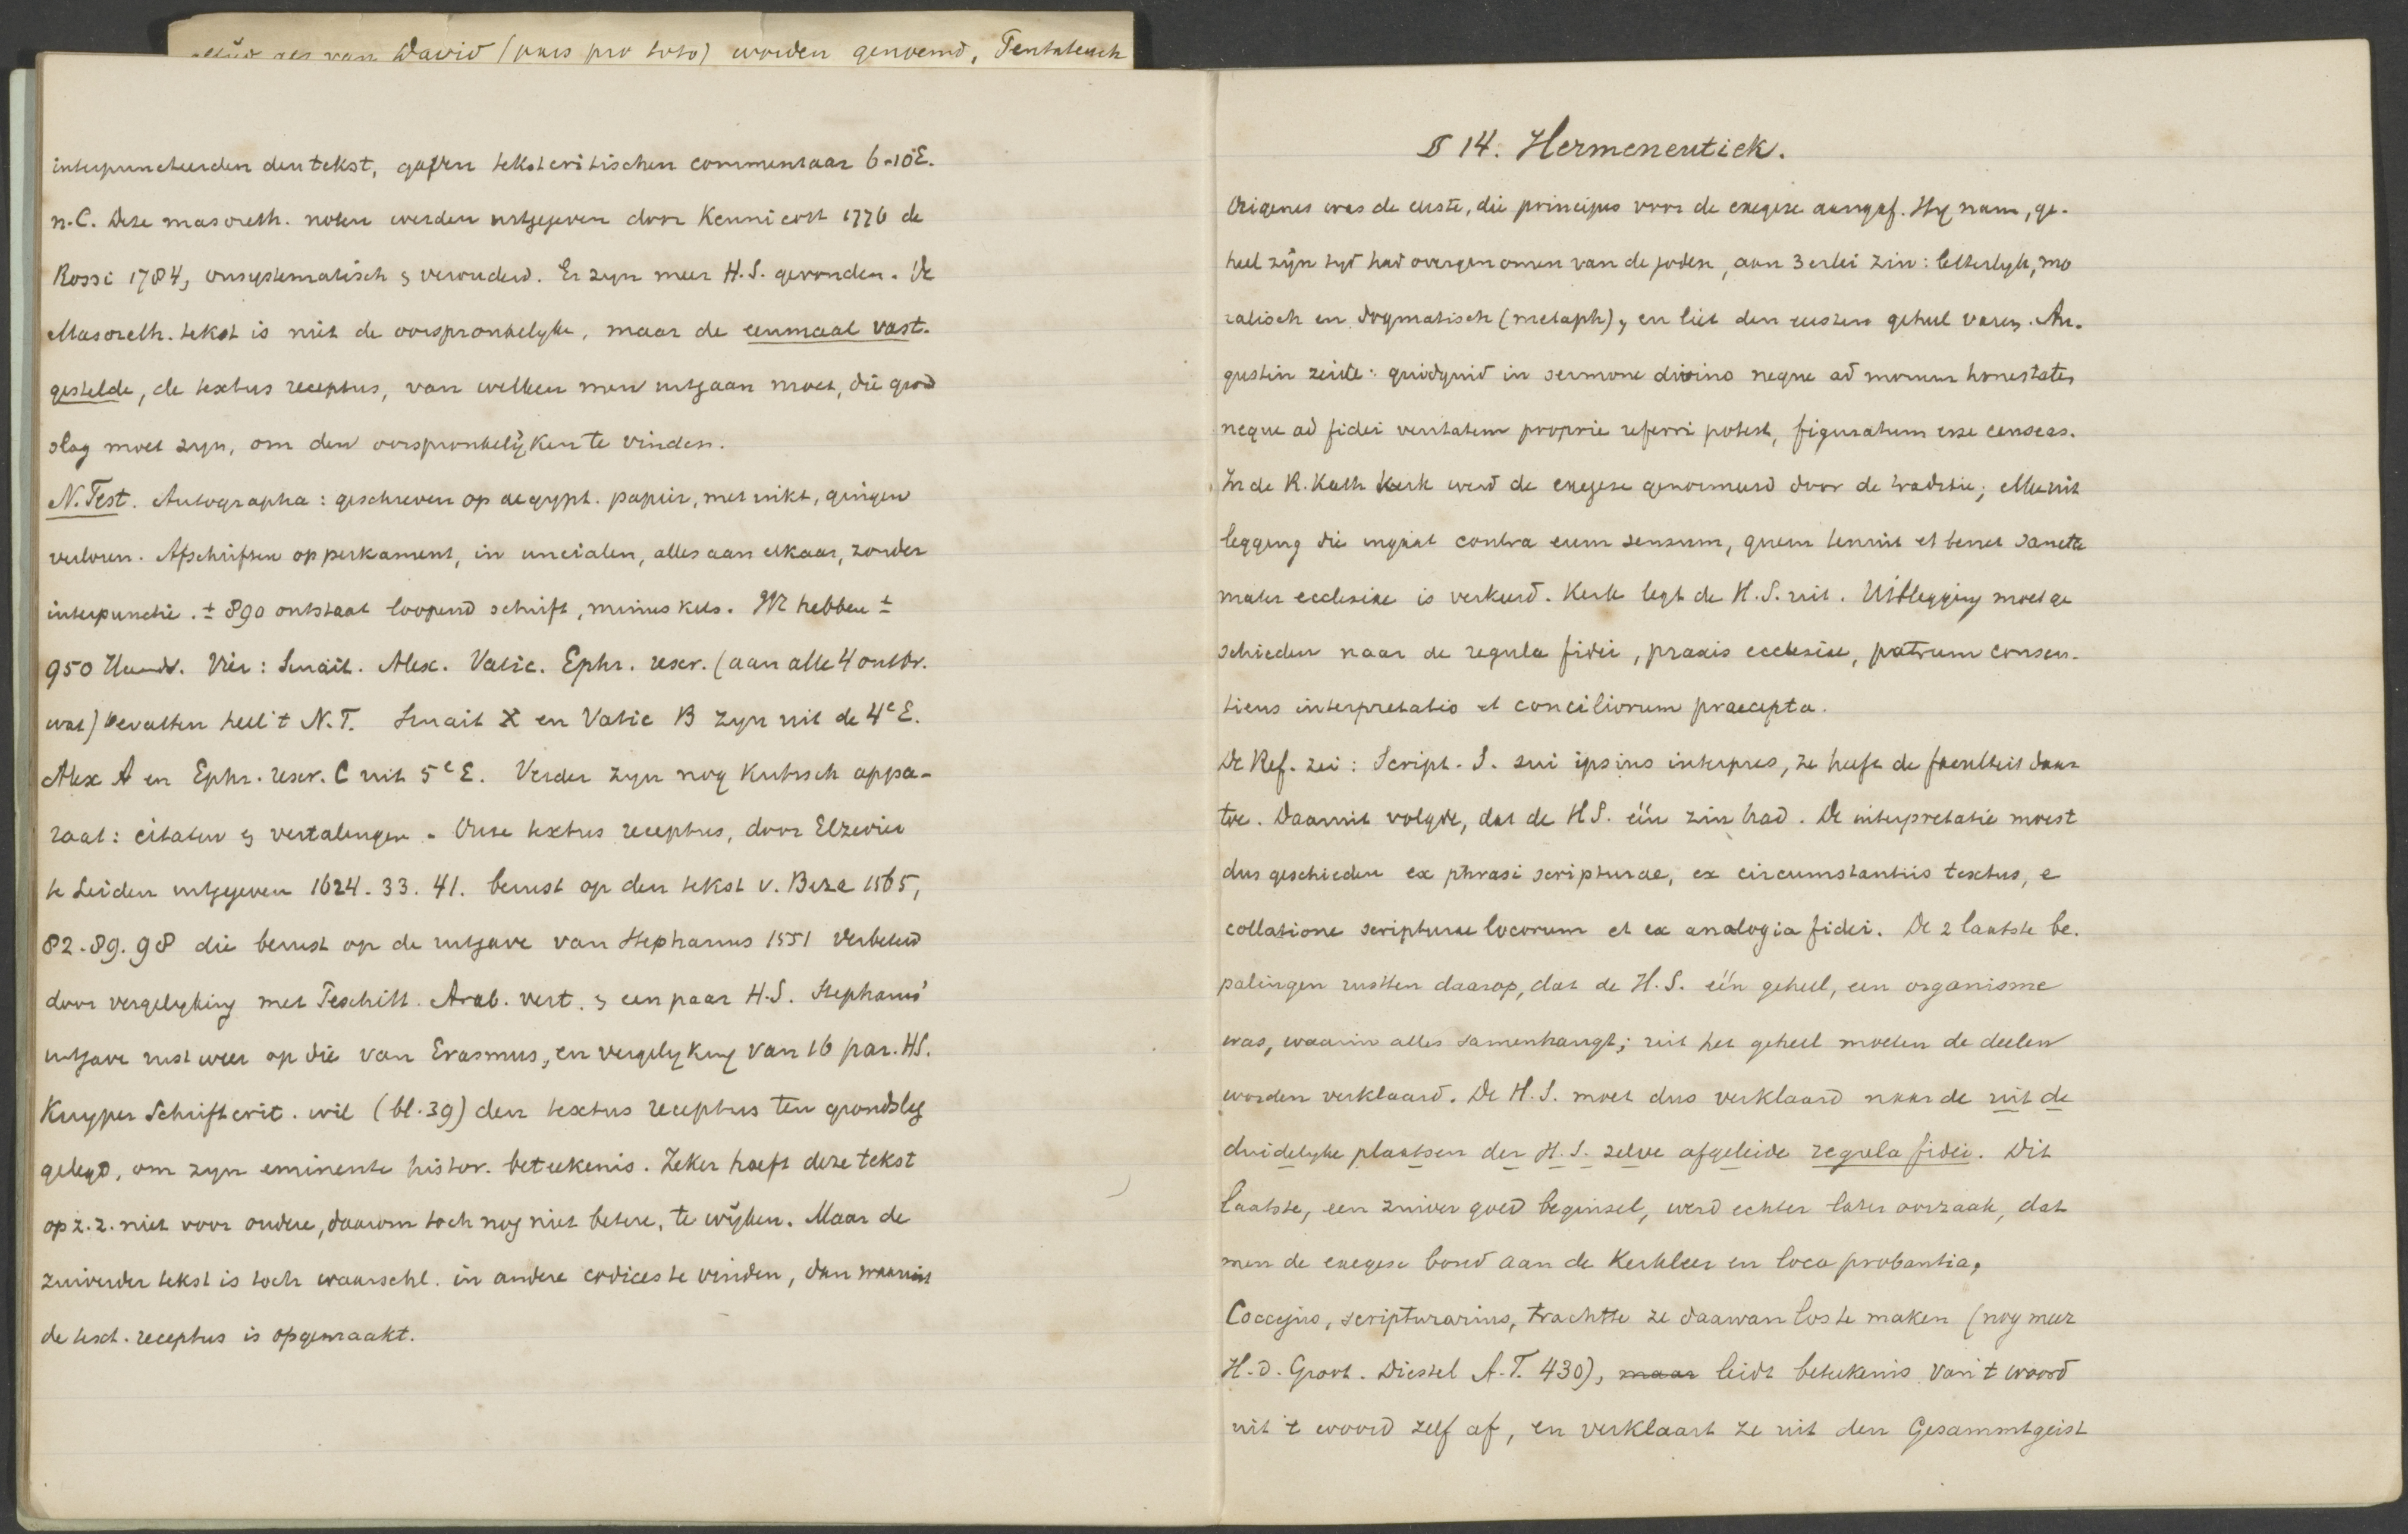 van David (pars pro toto) worden genoemd, Pentateuch
interpuncteerden den tekst, gaven tekstcritischen commentaar 6-10 E.
n.C. Deze masoreth. noten werden uitgegeven door Kennicott 1776 de
Rossi 1784, onsystematisch & verouderd. Er zyn meer H.S. gevonden. De
Masoreth. tekst is niet de oorspronkelyke, maar de eenmaal vast-
gestelde, de textus receptus, van welken men uitgaan moet, die grond
slag moet zyn, om den oorspronkelyken te vinden.
N. Test. Autographa: geschreven op aegypt. papier, met inkt, gingen
verloren. Afschriften op perkament, in uncialen, alles aan elkaar, zonder
interpunctie. ± 890 ontstaat loopend schrift, minuskels. We hebben ±
950 Handr. Vier: Sinait. Alex. Vatic. Ephr. rescr. (aan alle 4 ontbr.
wat) bevatten heel 't N.T. Sinait א en Vatic B zyn uit de 4e E.
Alex A en Ephr. rescr. C uit 5e E. Verder zyn nog Kritisch appa-
raat: citaten & vertalingen. Onze textus receptus, door Elzevier
te Leiden uitgegeven 1624. 33. 41. berust op den tekst v. Beza 1565,
82. 89. 98 die berust op de uitgave van Stephanus 1551 verbeterd
door vergelyking met Peschitt. Arab. vert. & een paar H.S. Stephanus'
uitgave rust weer op die van Erasmus, en vergelyking van 16 par. HS.
Kuyper Schriftcrit. wil (bl. 39) den textus receptus ten grondslag
gelegd, om zyn eminente histor. beteekenis. Zeker hoeft deze tekst
op z. z. niet voor andere, daarom toch nog niet betere, te wyken. Maar de
zuiverder tekst is toch waarschl. in andere codices te vinden, dan waaruit
de text. receptus is opgemaakt.
§ 14. Hermeneutiek.
Origenes was de eerste, die principes voor de exegese aangaf. Hy nam, ge-
heel zyn tyd had overgenomen van de joden, aan 3erlei zin: letterlyk, mo
ralisch en dogmatisch (metaph), en liet den eersten geheel varen. Au-
gustin zeide: quidquid in sermone divino neque ad morum honestatem
neque ad fidei veritatem proprie referri potest, figuratum esse censeas.
In de R. Kath Kerk werd de exegese genormeerd door de traditie; elke uit
legging die ingaat contra eum sensum, quem tenuit et tenet sancta
mater ecclesiae is verkeerd. Kerk legt de H.S. uit. Uitlegging moet ge
schieden naar de regula fidei, praxis ecclesiae, patrum consen-
tiens interpretatio et conciliorum praecepta.
De Ref. zei: Script. S. sui ipsius interpres, ze heeft de faculteit daar
toe. Daaruit volgde, dat de HS. één zin had. De interpretatie moest
dus geschieden ex phrasi scripturae, ex circumstantiis textus, e
collatione scripturae locorum et ex analogia fidei. De 2 laatste be-
palingen rustten daarop, dat de H.S. één geheel, een organisme
was, waarin alles samenhangt; uit het geheel moeten de deelen
worden verklaard. De H.S. moet dus verklaard naar de uit de
duidelyke plaatsen der H.S. zelve afgeleide regula fidei. Dit
laatste, een zuiver goed beginsel, werd echter later oorzaak, dat
men de exegese bond aan de Kerkleer en loca probantia.
Coccejus, scripturarius, trachtte ze daarvan los te maken (nog meer
H. d. Groot. Diestel A.T. 430), maar leidt beteekenis van 't woord
uit 't woord zelf af, en verklaart ze uit den Gesammtgeist